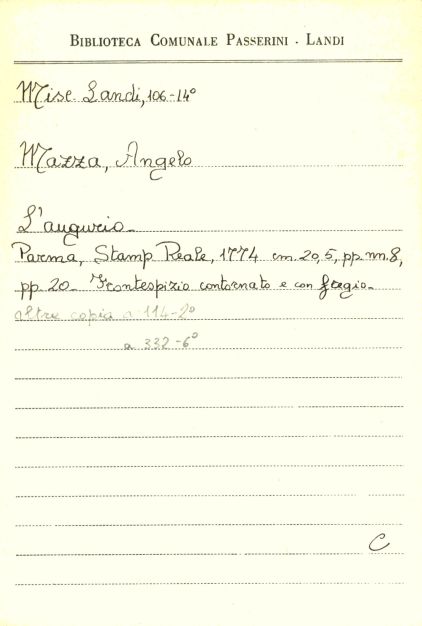 BIBLIOTECA COMUNALE PASSERINI - LANDI
Misc. Landi, 106-14°
Mazza, Angelo
L'augurio-
Parma, Stamp. Reale, 1774 cm. 20,5, pp. nn. 8,
pp. 20- Frontespizio contornato e con fregio-
altre copia a 114-2°
a 332-6°
C